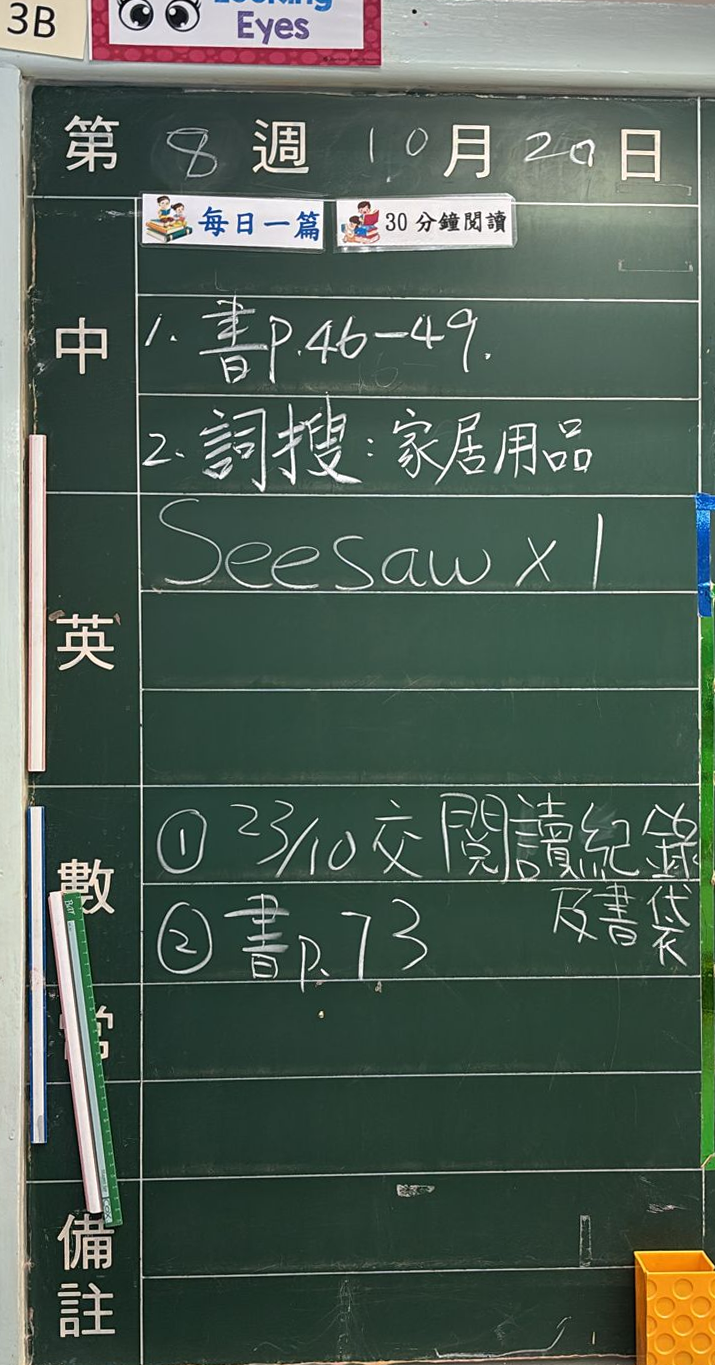 3B
Looking
Eyes
第 8 週 10 月 20 日
每日一篇 30分鐘閱讀
中
1. 書p.46-49.
2. 詞搜:家居用品
英
Seesaw x 1
數
① 23/10 交 閱讀紀錄
及書袋
② 書p.73
常
備註